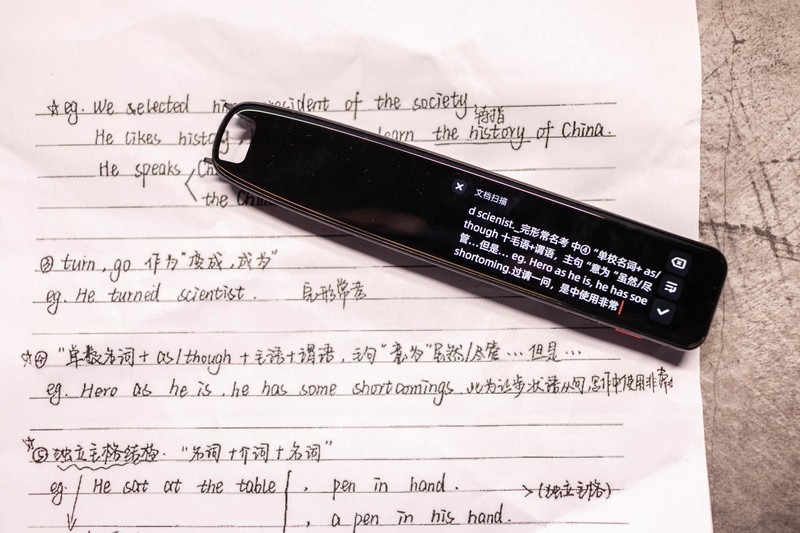 ☆eg. We selected him president of the society
特指
He likes history learn the history of China.
He speaks
the
③ turn, go 作为“变成,成为”
eg. He turned scientist. 完形常考
☆④ “单数名词+ as/though +主语+谓语,主句”意为“虽然/尽管…但是…
eg. Hero as he is, he has some shortcomings 此为让步状语从句,写作中使用非常
☆⑤ 独立主格结构. “名词+介词+名词”
eg. He sat at the table , pen in hand. (独立主格)
, a pen in his hand.
文档扫描
d scienist._完形常名考 中④ “单校名词+ as/
though 十毛语+谓语, 主句 “意为 “虽然/尽
管...但是... eg. Hero as he is, he has soe
shortoming.过请一问, 是中使用非常